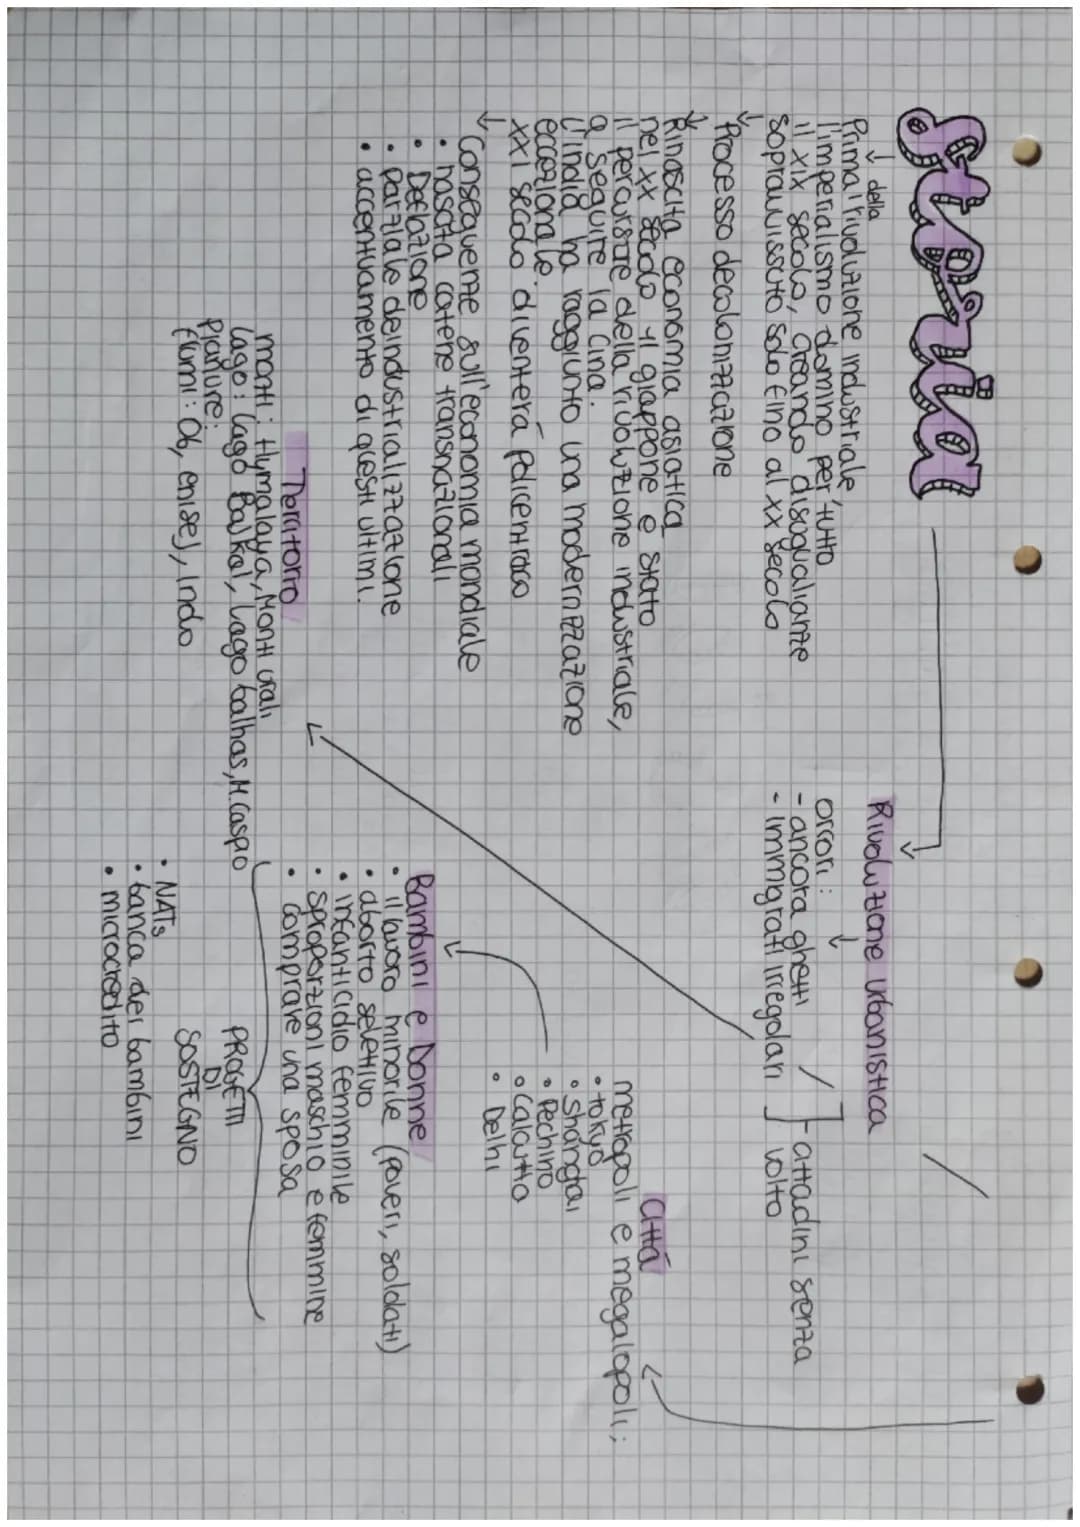 Storia
↓ della
Prima rivoluzione industriale,
l'imperialismo domino per tutto
il XIX secolo, creando disugualianze
sopravvissuto solo fino al XX secolo
↓
Processo decolonizzazione
↓
Rinascita economia asiatica
nel XX secolo il giappone è stato
il percursore della rivoluzione industriale,
a seguire la Cina.
L'india ha raggiunto una modernizzazione
eccezionale.
XXI secolo diventerà policentrico
↓ Conseguenze sull'economia mondiale
• nascita catene transnazionali
• Deflazione
• parziale deindustrializzazione
• accentuamento di questi ultimi.
Territorio
monti: Hymalaya, Monti urali
Lago: lago Bajkal, Lago balhas, M. Caspio
Pianure:
fiumi: Ob, enisej, Indo
Rivoluzione urbanistica
orrori: ↓
- ancora ghetti
- immigrati irregolari
] - cittadini senza
volto
Città
metropoli e megalopoli;
• tokyo
• Shangai
• Pechino
• Calcutta
• Delhi
Bambini e Donne
• il lavoro minorile (poveri, soldati)
• aborto selettivo
• infanticidio femminile
• sproporzioni maschio e femmine
• comprare una sposa
PROGETTI
DI
SOSTEGNO
• NATs
• banca dei bambini
• microcredito